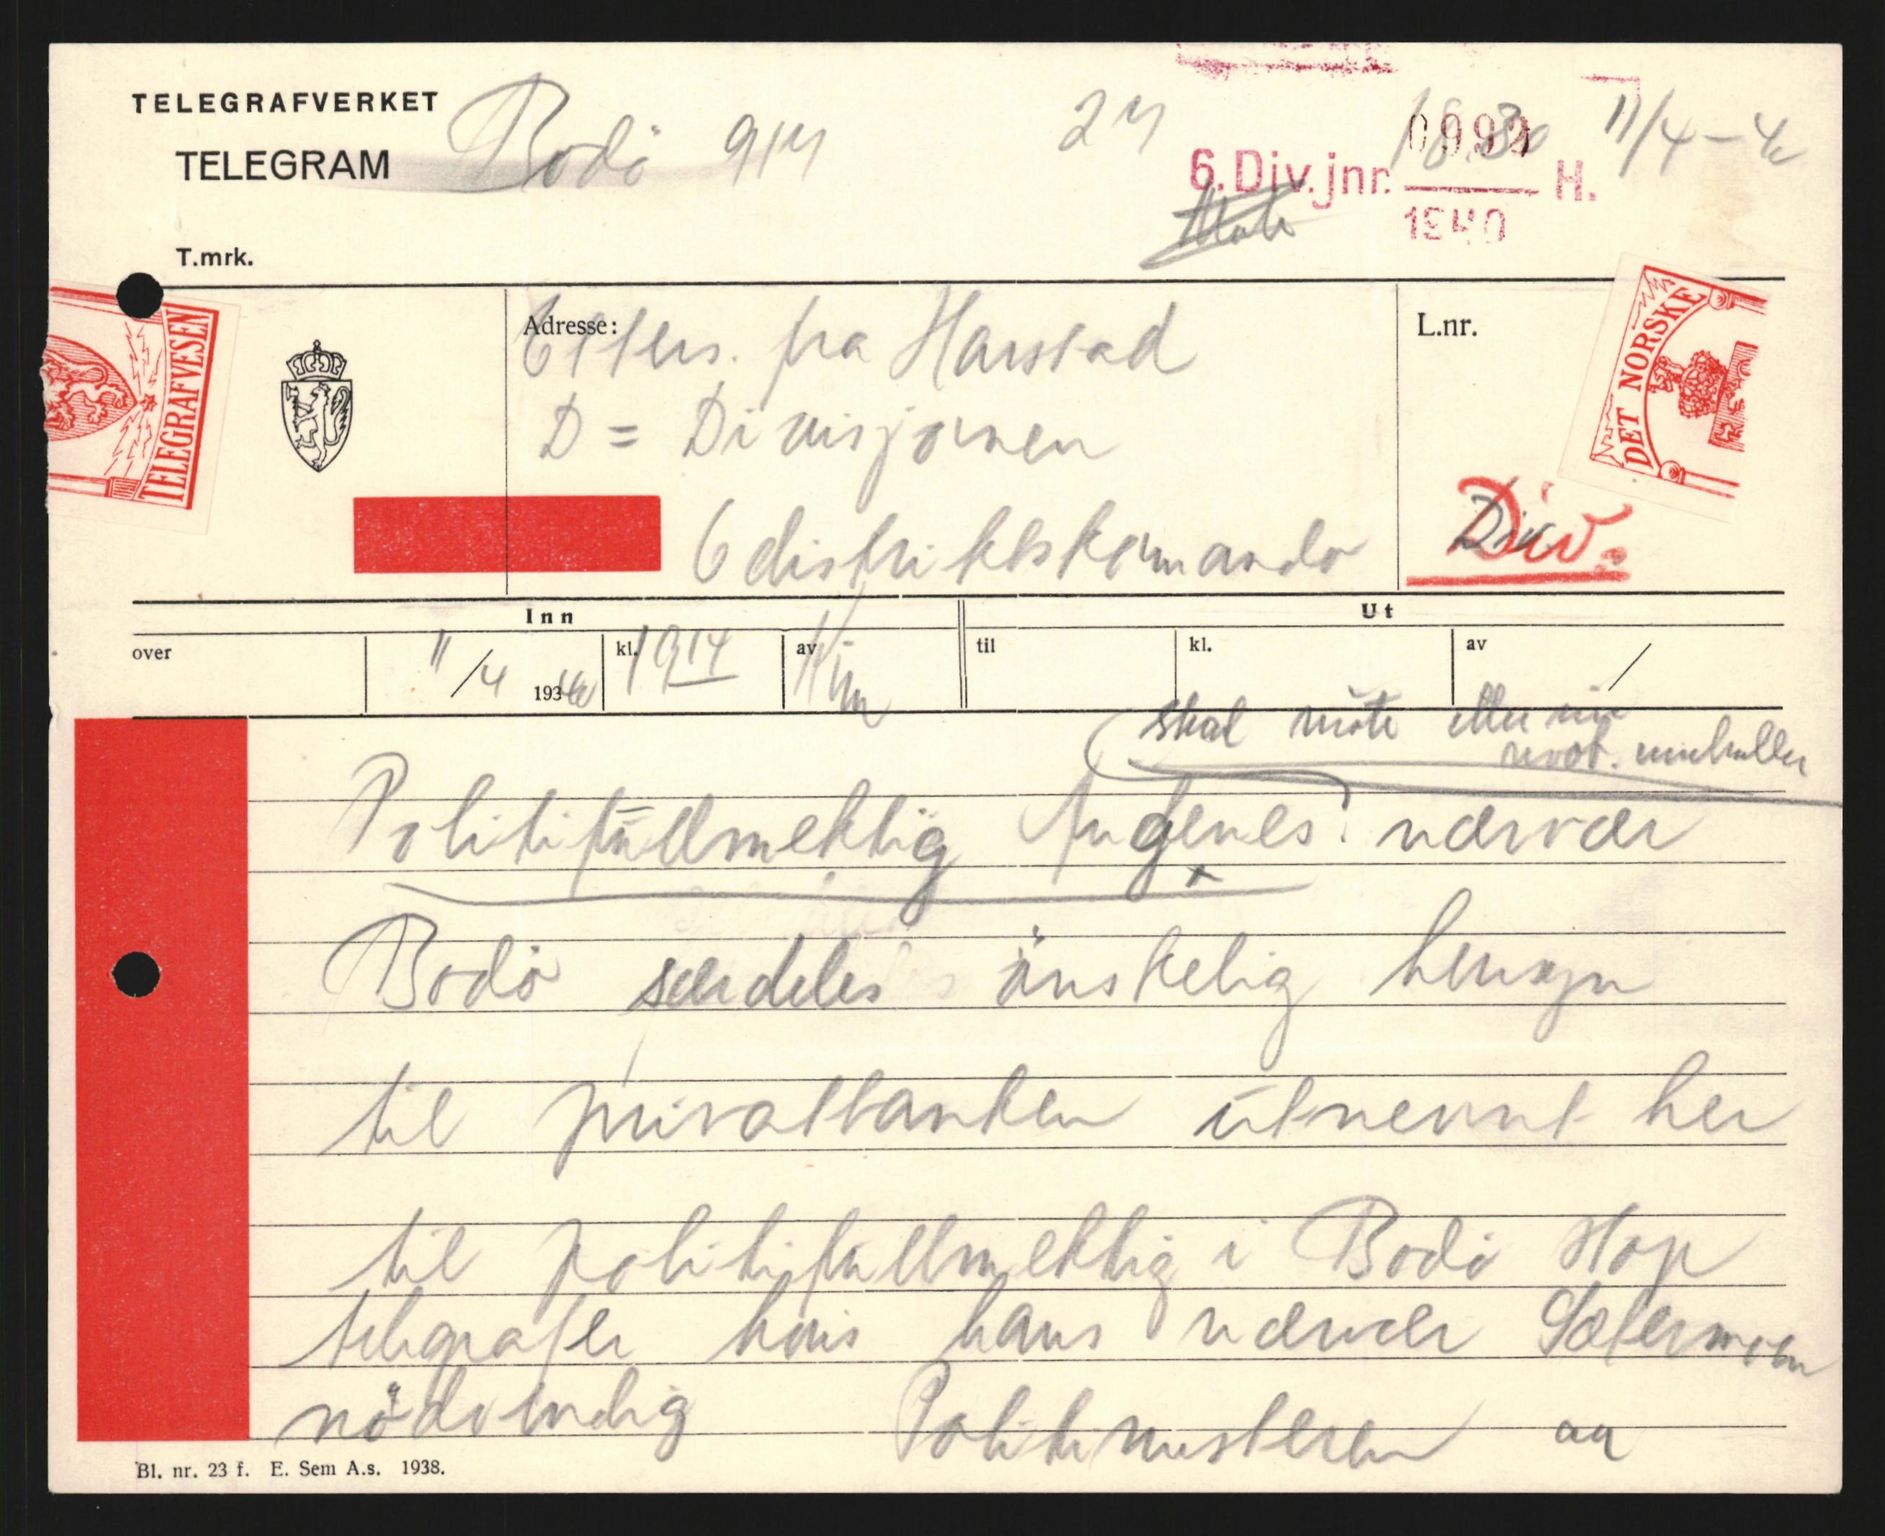 TELEGRAFVERKET
TELEGRAM Bodö 914 24 18.30 11/4-40
6. Div. jnr. 0999 H.
1940
T.mrk.
TELEGRAFVESEN
DET NORSKE
Adresse:
L.nr.
Etters. fra Harstad
D = Divisjonen
6 distriktskommando
Div.
Inn
Ut
over 11/4 1940 kl. 1914 av til kl. av /
skal möte eller
Politifüllmektig nærvær
Bodö særdeles önskelig hensyn
til privatbanken ütnevnt her
til politifüllmektig i Bodö stop
telegrafer hvis hans nærvær Sætermoen
nödvendig Politimesteren aa
Bl. nr. 23 f. E. Sem A.s. 1938.